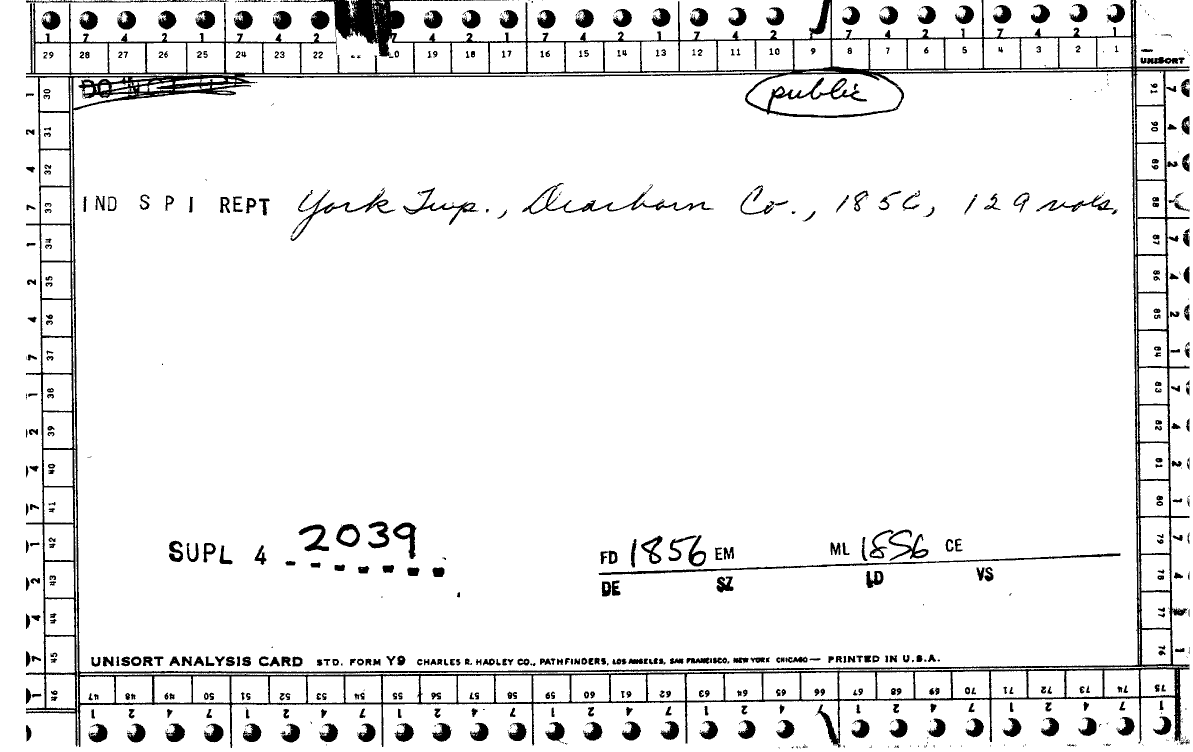 1 7 4 2 1 7 4 2 7 4 2 1 7 4 2 1 7 4 2 7 4 2 1 7 4 2 1
29 28 27 26 25 24 23 22 20 19 18 17 16 15 14 13 12 11 10 9 8 7 6 5 4 3 2 1
UNISORT
public
IND S P I REPT York Twp., Dearborn Co., 1856, 129 vols.
SUPL 4 2039
FD 1856 EM ML 1856 CE
DE SZ LD VS
UNISORT ANALYSIS CARD STD. FORM Y9 CHARLES R. HADLEY CO., PATHFINDERS, LOS ANGELES, SAN FRANCISCO, NEW YORK CHICAGO — PRINTED IN U.S.A.
30 31 32 33 34 35 36 37 38 39 40 41 42 43 44 45 46
47 48 49 50 51 52 53 54 55 56 57 58 59 60 61 62 63 64 65 66 67 68 69 70 71 72 73 74 75
91 90 89 88 87 86 85 84 83 82 81 80 79 78 77 76